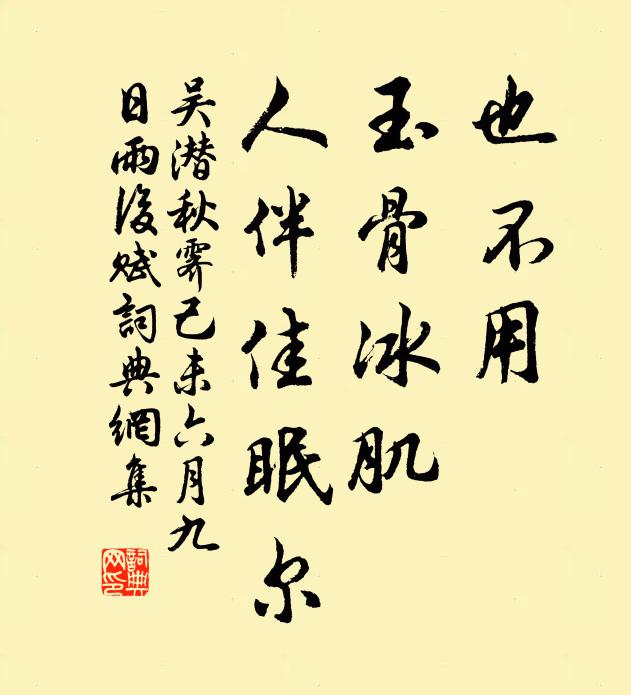 也不用
玉骨冰肌
人伴佳眠尔
吴潜秋霽己未六月九
日雨後赋詞典網集
詞典网印